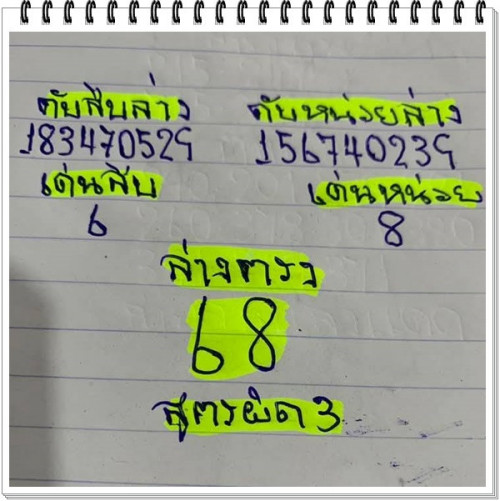 ดับสิบล่าง ดับหน่วยล่าง
183470529 156740239
เด่นสิบ เด่นหน่วย
6 8
ล่างตรง
68
สูตรผิด 3